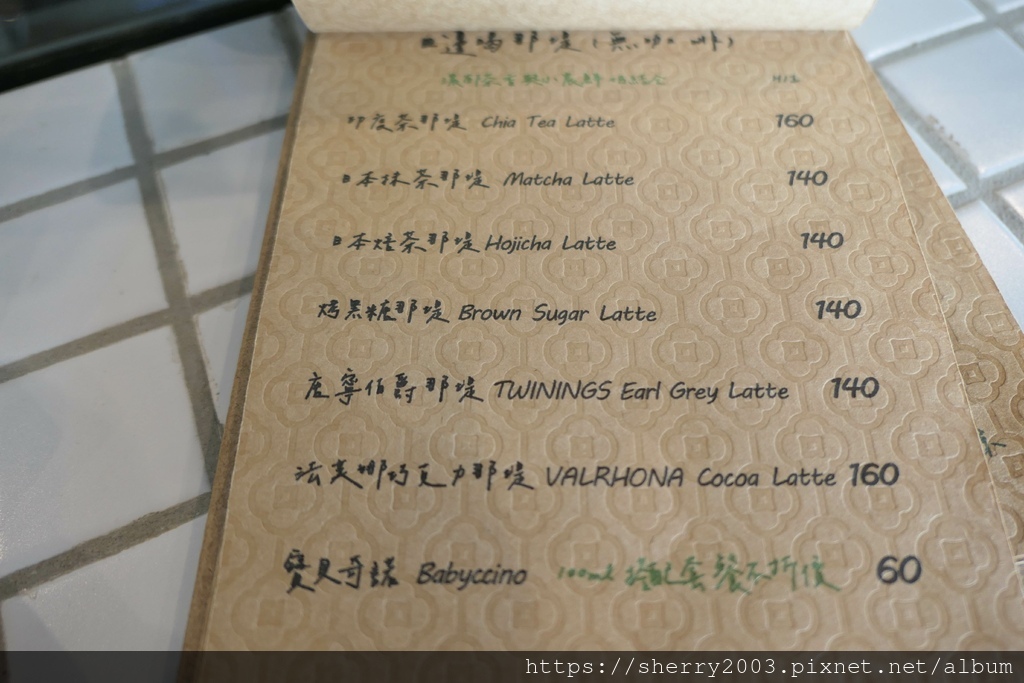 那堤(無咖啡)
H/I
印度茶那堤 Chia Tea Latte 160
日本抹茶那堤 Matcha Latte 140
日本焙茶那堤 Hojicha Latte 140
烤黑糖那堤 Brown Sugar Latte 140
唐寧伯爵那堤 TWININGS Earl Grey Latte 140
法芙娜巧克力那堤 VALRHONA Cocoa Latte 160
寶貝奇諾 Babyccino 100ml 搭配套餐不折價 60
https://sherry2003.pixnet.net/album